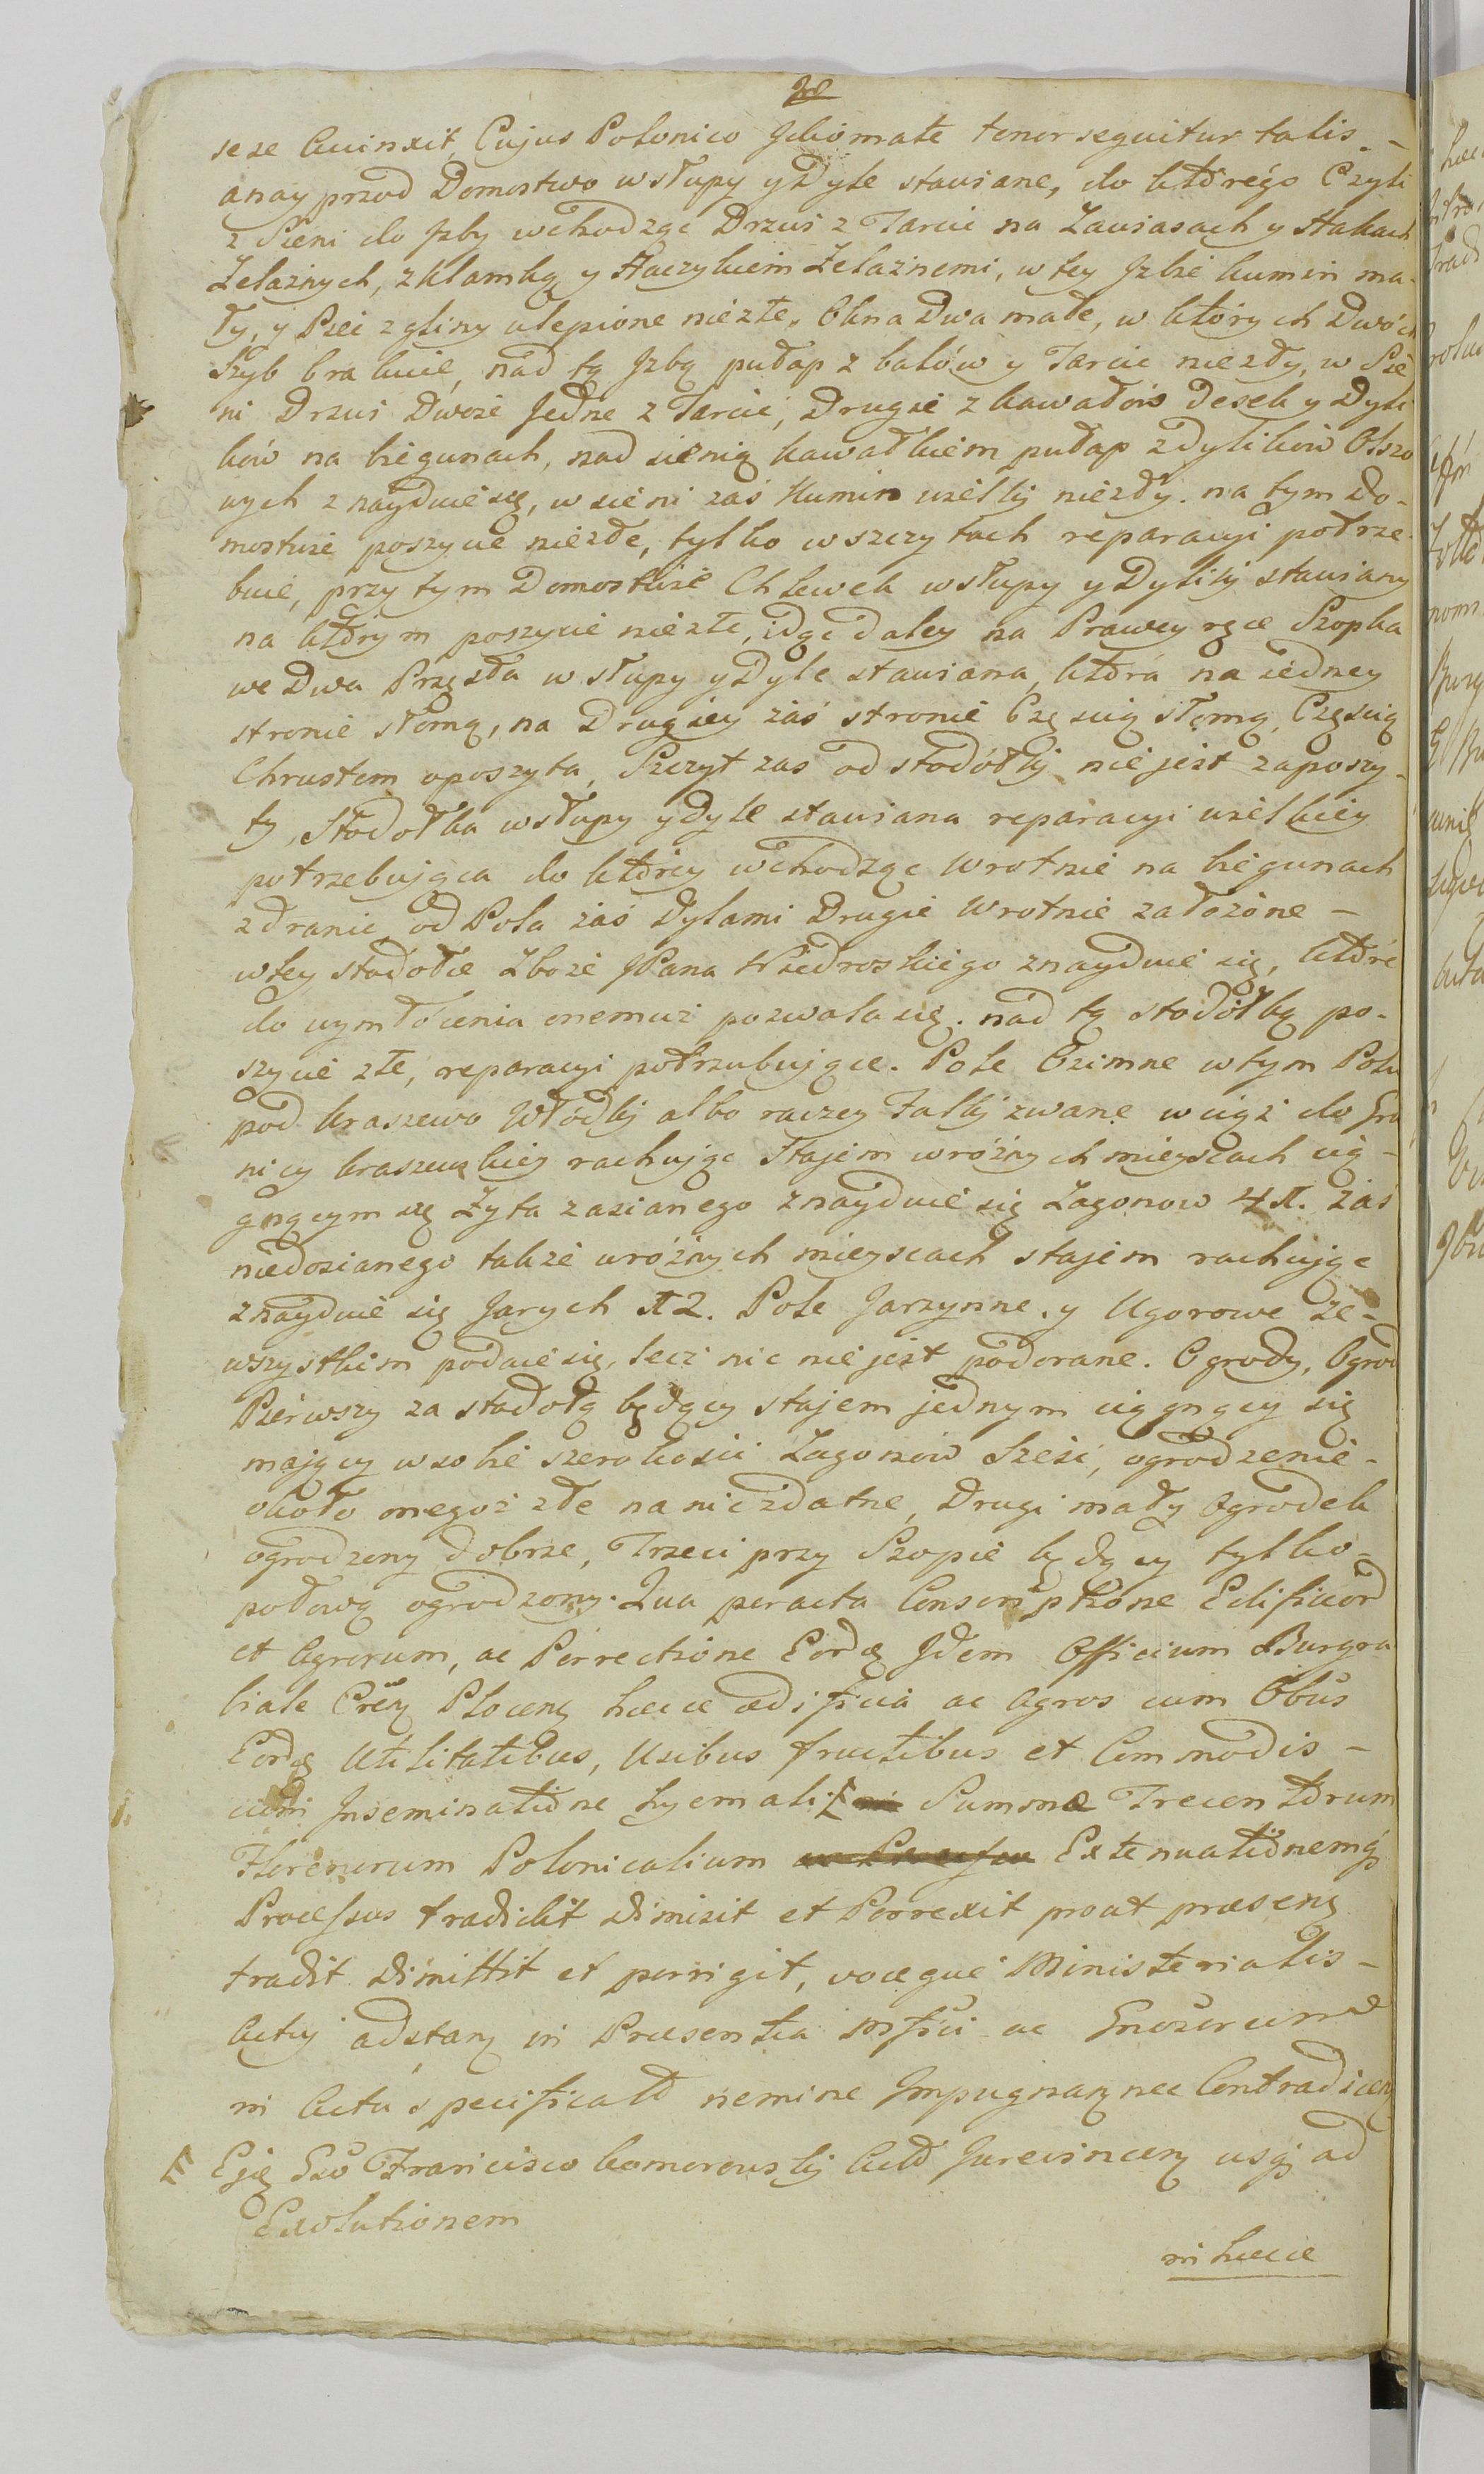 sese Accinxit, Cujus Polonico Jdiomate tenor sequitur talis. –
anay przod Domostwo w słupy y Dyle stawiane, do którego Czyli
z Sieni do Jzby wchodząc Drzwi z Tarcic na Zawiasach y Hakach
Zelaznych, z klamką y Haczykiem Zelaznemi, w tey Jzbie kumin ma-
ły, y Piec z gliny ulepione niezłe. Okna Dwa małe, w których Dwóch
Szyb brakuie, nad tą Jzbą pułap z balów y Tarcic niezły, w Sie
ni Drzwi Dwoie Jedne z Tarcic, Drugie z kawałów Desek y Dyli
ków na biegunach, nad sienią kawałkiem pułap z dylików Olszo
wych znayduie się, w sieni zaś Kumin wielki niezły. na tym Do-
mostwie poszycie niezłe, tylko w szczytach reparacyi potrze
buie, przy tym Domostwie Chlewek w słupy y Dyliki stawiany
na którym poszycie niezłe, idąc daley na Prawey ręce Szopka
we Dwa Przęsła w słupy y Dyle stawiana, która na iedney
stronie słomą, na Drugiey zaś stronie Częscią słomą, Częscią
Chrustem oposzyta, Szczyt zas od stodółki nie jest zaposzy-
ty, Stodołka w słupy y dyle stawiana reparacyi wielkiey
potrzebująca do którey wchodząc Wrotnie na biegunach
z dranic, od Pola zaś Dylami Drugie Wrotnie załozone –
w tey stodole Zboze JPana Niedroskiego znayduie się, które
do wymłócenia onemuż pozwala się. nad tą stodółką po-
szycie złe, reparacyi potrzebujące. Pole Ozimne w tym Polu
pod Kraszewo Włódki albo raczey Falki zwane w ciąż do Gra
nicy kraszewskiey rachując Stajem w róznych mieyscach cią-
gnącym się Zyta zasianego znayduie się Zagonow 4 zaś
niedosianego takze w róznych mieyscach stajem rachując
znayduie się Jarych 2. Pole Jarzynne y Ugorowe ze-
wszystkim podaie się, lecz nic nie jest podorane. Ogrody, Ogrod
Pierwszy za stodołą będący stajem jednym ciągnący się
mający w sobie szerokosci Zagonów Sześć, ogrodzenie-
około onegoż złe na nic zdatne, Drugi mały Ogrodek
ogrodzony dobrze, Trzeci przy Szopie będący tylko-
połową ogrodzony. Qua peracta Conscriptione Edificior
et Agrorum, ac Porrectione Eordq Jdem Officium Burgra
biale Cren Plocen hæcce ædificia ac Agros cum Obus
Eordq Utilitatibus, Usibus fructibus et Commodis –
cum Inseminatione hyemali Summæ Trecentorum
Florenorum Polonicalium Extenuationemq
Processus tradidit dimisit et Porrexit prout præsens
tradit dimittit et porrigit, voceque Ministerialis –
Actui adstan in Præsentia Mfici ac Gnosorum
in Actu specificat nemine Impugnan nec Contradicen
Gso Francisco Komorowski Actoreusq ad
Exolutionem
in hæcce